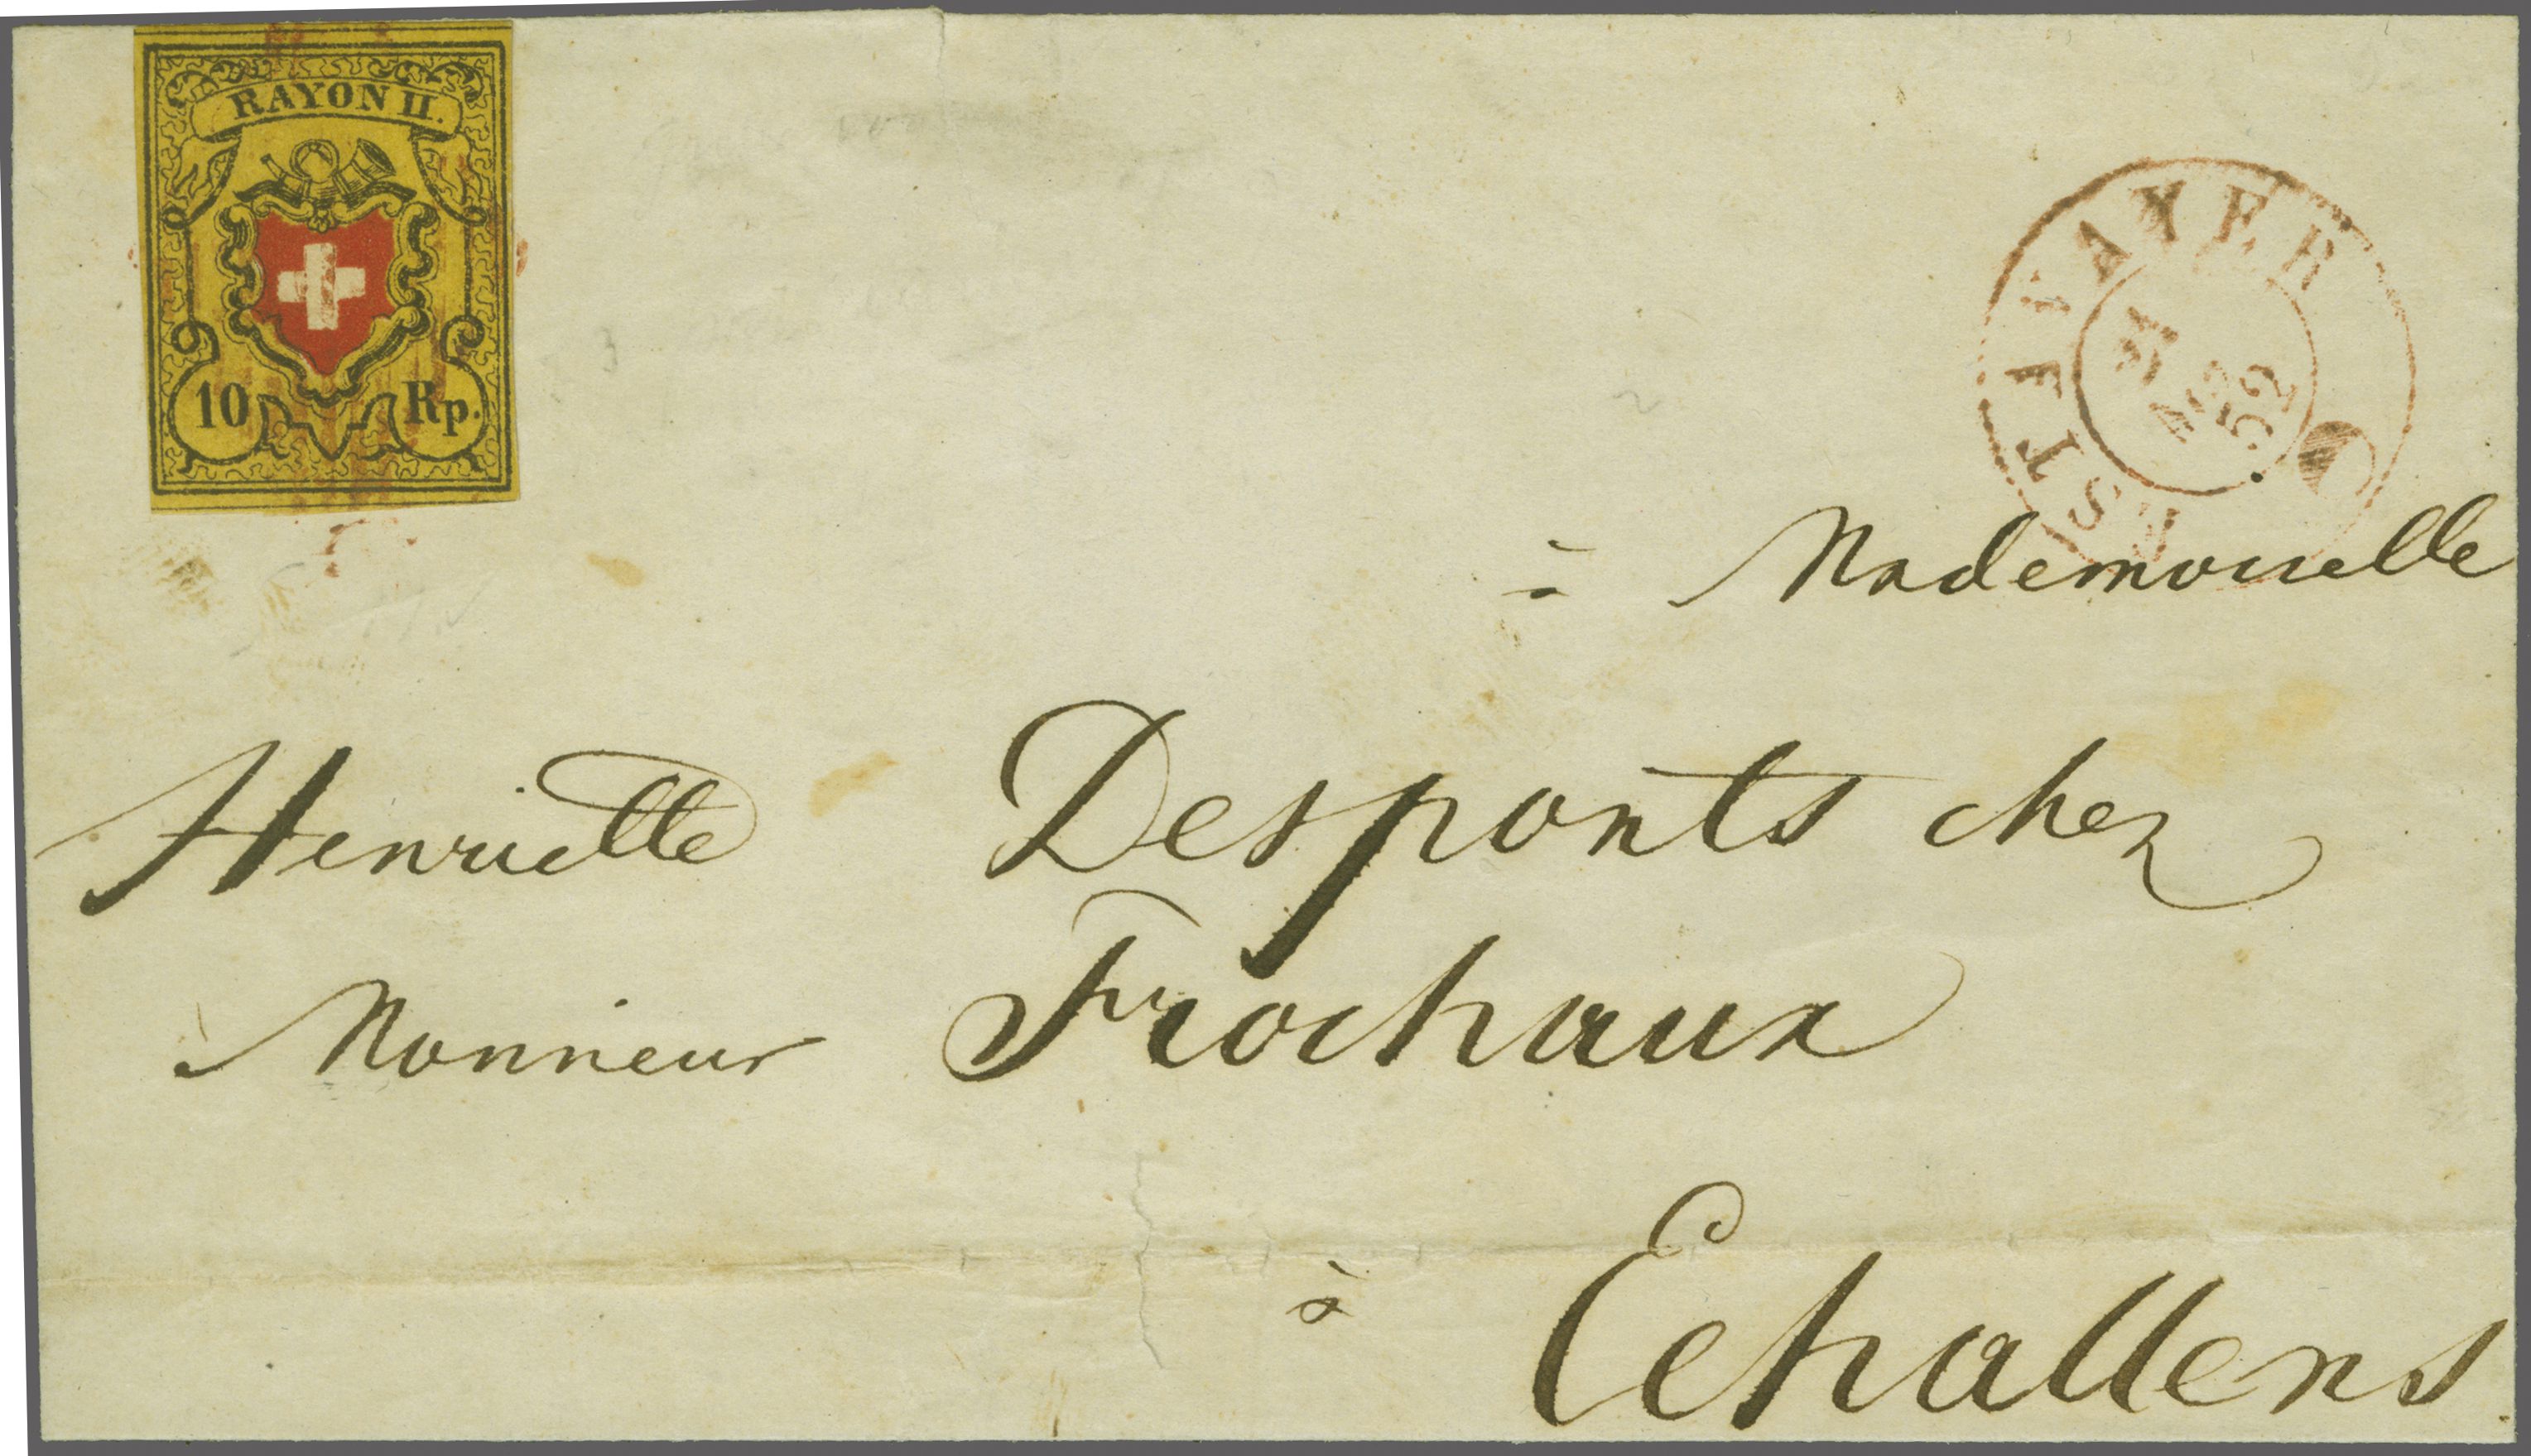 RAYON II.
10 Rp.
ESTAVAYER
à Mademoiselle
Henriette Desponts chez
Monsieur Frochaux
à Echallens